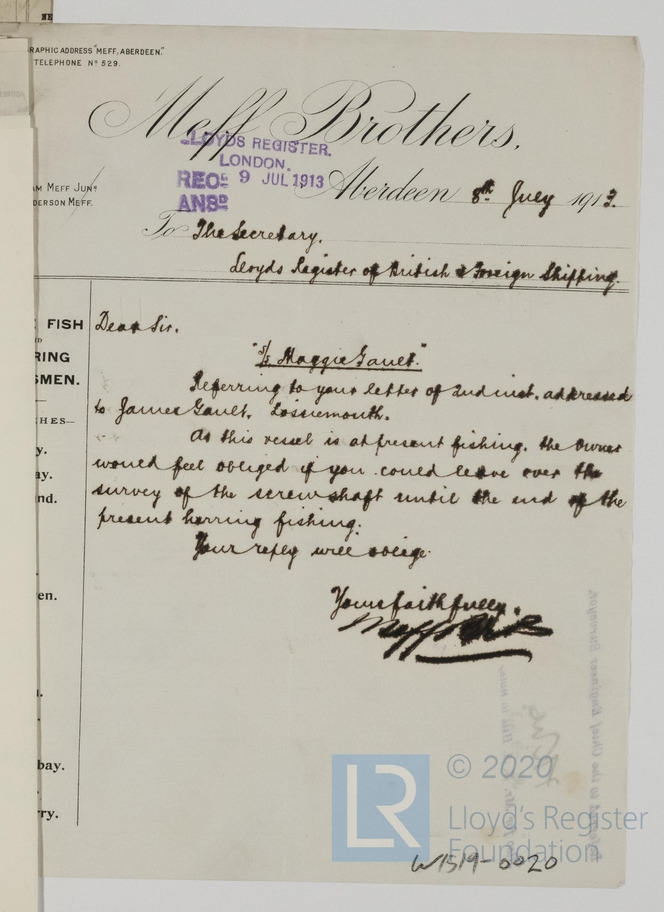 RAPHIC ADDRESS "MEFF, ABERDEEN."
TELEPHONE Nº 529.
Meff Brothers,
LLOYDS REGISTER.
LONDON.
RECD 9 JUL 1913
ANSD
AM MEFF JUNR
DERSON MEFF.
Aberdeen 8th July 1913.
To The Secretary.
Lloyds Register of British & Foreign Shipping.
FISH
RING
SMEN.
CHES—
y.
ay.
nd.
en.
bay.
rry.
Dear Sir.
"S/S Maggie Gault."
Referring to your letter of 2nd inst. addressed
to James Gault. Lossiemouth.
As this vessel is at present fishing. the owner
would feel obliged if you could leave over the
survey of the screw shaft until the end of the
present herring fishing.
Your reply will oblige
Yours faithfully.
Meff Bros
© 2020
LR
Lloyd's Register
Foundation
W1519-0020